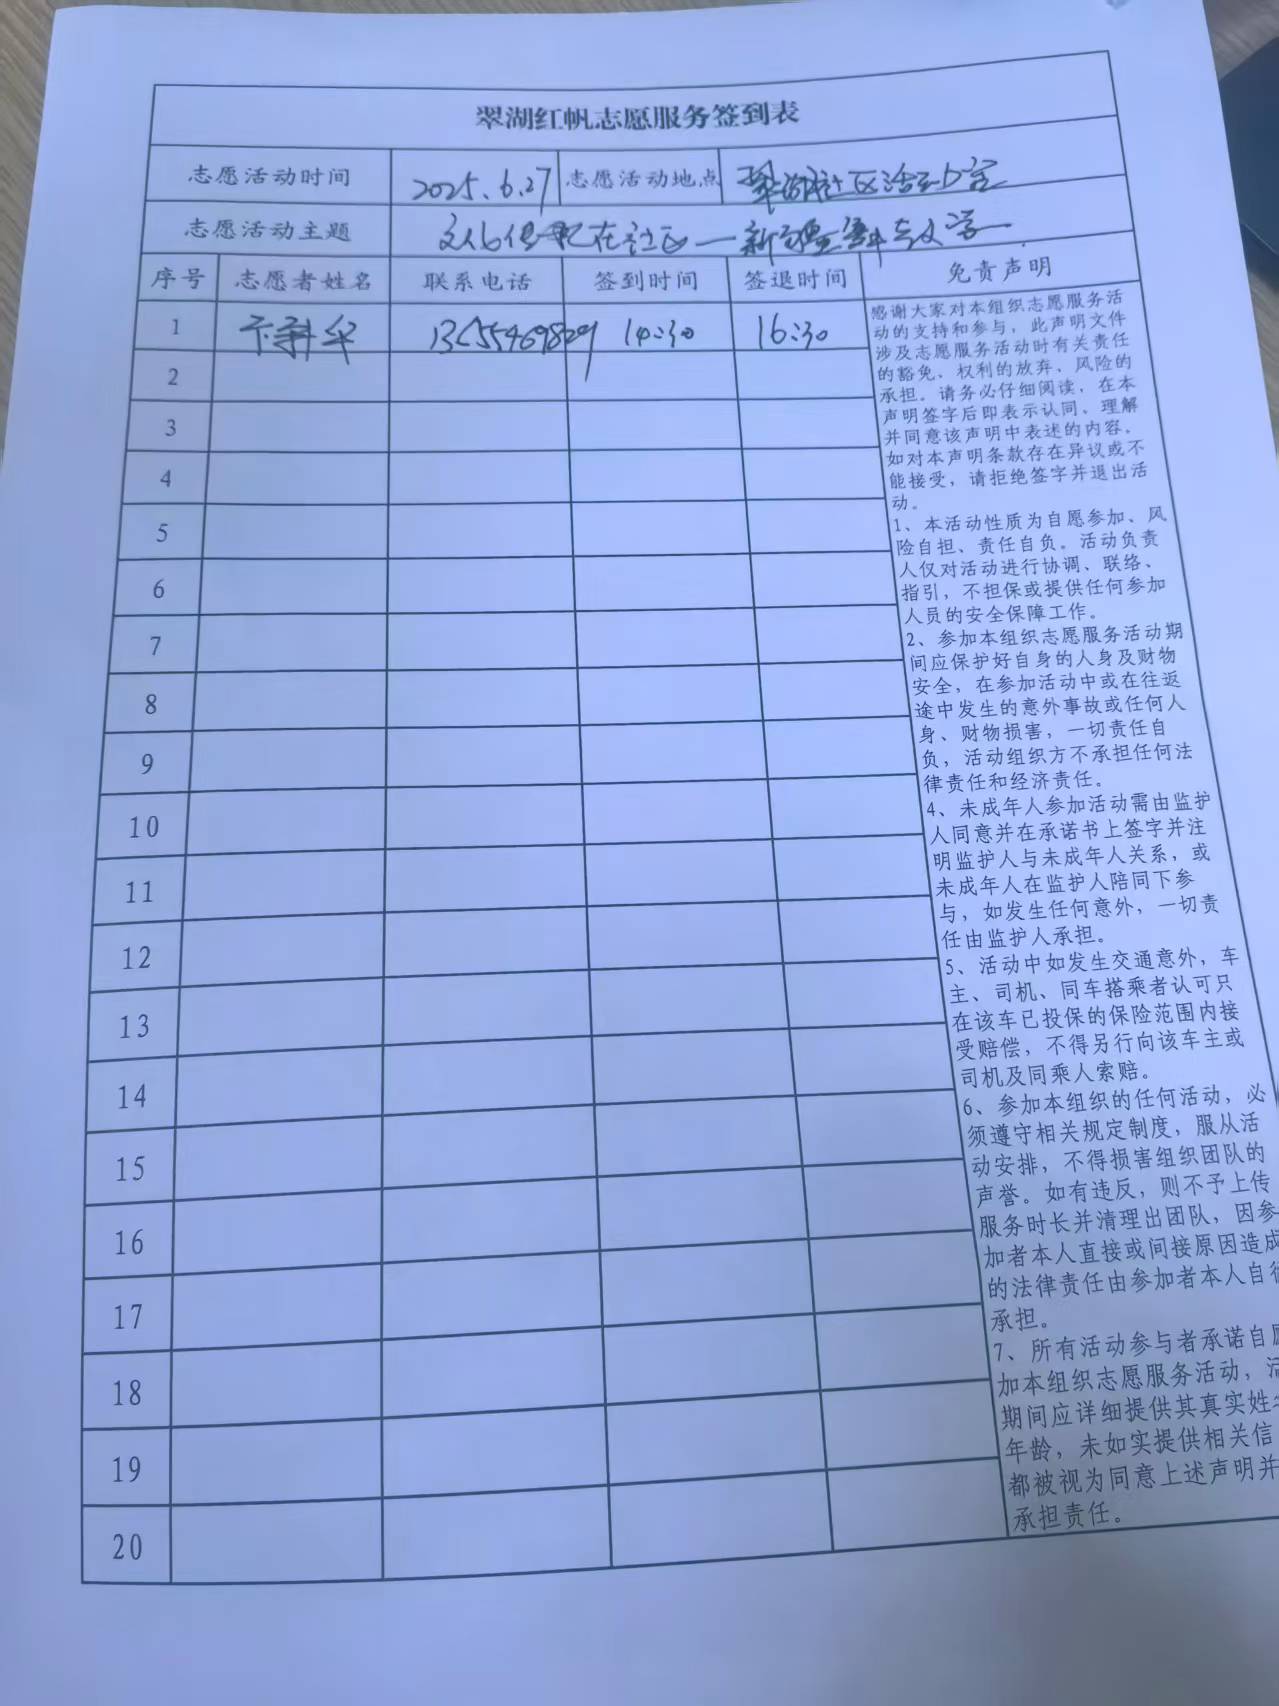 翠湖红帆志愿服务签到表
志愿活动时间 2025.6.27 志愿活动地点 翠湖社区活动室
志愿活动主题 文化传承在社区—新疆舞教学
序号 志愿者姓名 联系电话 签到时间 签退时间 免责声明
1 14:30 16:30
2
3
4
5
6
7
8
9
10
11
12
13
14
15
16
17
18
19
20
感谢大家对本组织志愿服务活
动的支持和参与，此声明文件
涉及志愿服务活动时有关责任
的豁免、权利的放弃、风险的
承担。请务必仔细阅读，在本
声明签字后即表示认同、理解
并同意该声明中表述的内容。
如对本声明条款存在异议或不
能接受，请拒绝签字并退出活
动。
1、本活动性质为自愿参加、风
险自担、责任自负。活动负责
人仅对活动进行协调、联络、
指引，不担保或提供任何参加
人员的安全保障工作。
2、参加本组织志愿服务活动期
间应保护好自身的人身及财物
安全，在参加活动中或在往返
途中发生的意外事故或任何人
身、财物损害，一切责任自
负，活动组织方不承担任何法
律责任和经济责任。
4、未成年人参加活动需由监护
人同意并在承诺书上签字并注
明监护人与未成年人关系，或
未成年人在监护人陪同下参
与，如发生任何意外，一切责
任由监护人承担。
5、活动中如发生交通意外，车
主、司机、同车搭乘者认可只
在该车已投保的保险范围内接
受赔偿，不得另行向该车主或
司机及同乘人索赔。
6、参加本组织的任何活动，必
须遵守相关规定制度，服从活
动安排，不得损害组织团队的
声誉。如有违反，则不予上传
服务时长并清理出团队，因参
加者本人直接或间接原因造成
的法律责任由参加者本人自行
承担。
7、所有活动参与者承诺自愿
加本组织志愿服务活动，活
期间应详细提供其真实姓名
年龄，未如实提供相关信
都被视为同意上述声明并
承担责任。